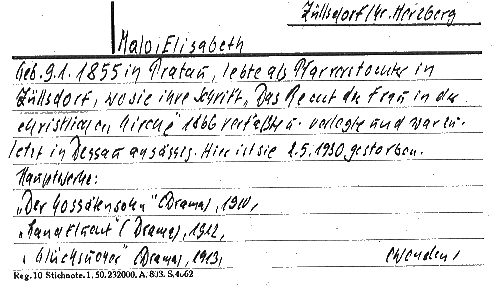 Züllsdorf/Kr. Herzberg
Malo, Elisabeth
Geb. 9.1. 1855 in Pratau, lebte als Pfarrerstochter in
Züllsdorf, wo sie ihre Schrift „Das Recht der Frau in der
christlichen Kirche" 1866 verfaßte u. verlegte und war zu-
letzt in Dessau ansässig. Hier ist sie 2.5.1930 gestorben.
Hauptwerke:
„Der Gossätensohn" (Drama), 1910,
(Drama), 1912,
„Glücksucher" (Drama), 1913,
Reg. 10 Stichnote. 1, 50, 232000. A. 803. S. 4062